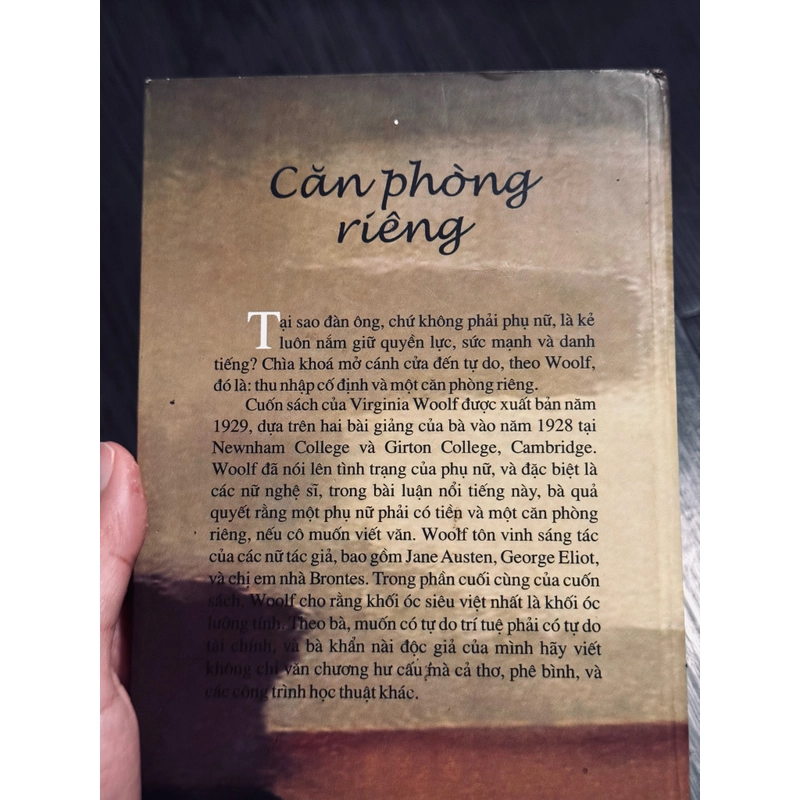 Căn phòng
riêng
Tại sao đàn ông, chứ không phải phụ nữ, là kẻ
luôn nắm giữ quyền lực, sức mạnh và danh
tiếng? Chìa khoá mở cánh cửa đến tự do, theo Woolf,
đó là: thu nhập cố định và một căn phòng riêng.
Cuốn sách của Virginia Woolf được xuất bản năm
1929, dựa trên hai bài giảng của bà vào năm 1928 tại
Newnham College và Girton College, Cambridge.
Woolf đã nói lên tình trạng của phụ nữ, và đặc biệt là
các nữ nghệ sĩ, trong bài luận nổi tiếng này, bà quả
quyết rằng một phụ nữ phải có tiền và một căn phòng
riêng, nếu cô muốn viết văn. Woolf tôn vinh sáng tác
của các nữ tác giả, bao gồm Jane Austen, George Eliot,
và chị em nhà Brontes. Trong phần cuối cùng của cuốn
sách, Woolf cho rằng khối óc siêu việt nhất là khối óc
lưỡng tính. Theo bà, muốn có tự do trí tuệ phải có tự do
tài chính, và bà khẩn nài độc giả của mình hãy viết
không chỉ văn chương hư cấu mà cả thơ, phê bình, và
các công trình học thuật khác.